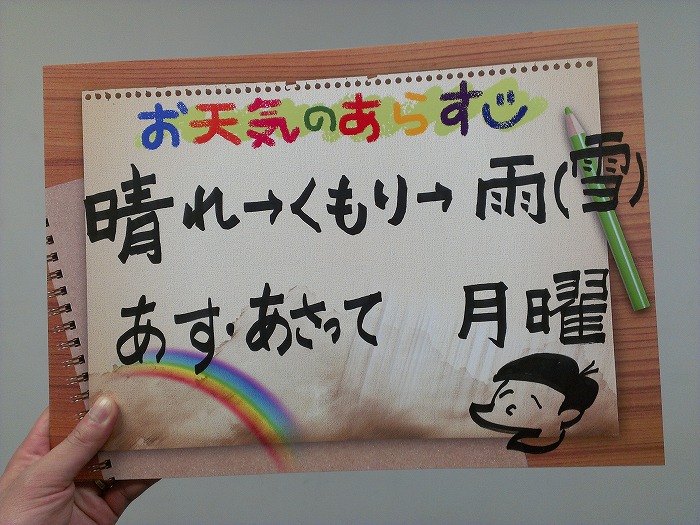 お天気のあらすじ
晴れ→くもり→雨(雪)
あす・あさって 月曜